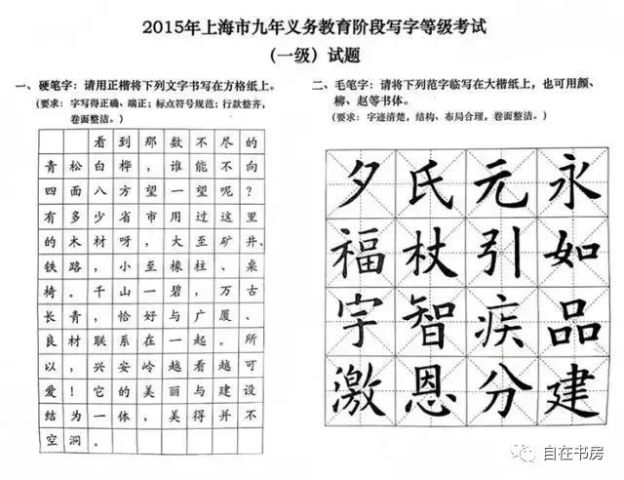 2015年上海市九年义务教育阶段写字等级考试
（一级）试题
一、硬笔字：请用正楷将下列文字书写在方格纸上。
（要求：字写得正确、端正；标点符号规范；行款整齐，
卷面整洁。）
看到那数不尽的
青松白桦，谁能不向
四面八方望一望呢？
有多少省市用过这里
的木材呀，大至矿井、
铁路，小至椽柱、桌
椅。千山一碧，万古
长青，恰好与广厦、
良材联系在一起。所
以，兴安岭越看越可
爱！它的美丽与建设
结为一体，美得并不
空洞。
二、毛笔字：请将下列范字临写在大楷纸上，也可用颜、
柳、赵等书体。
（要求：字迹清楚，结构、布局合理，卷面整洁。）
夕氏元永
福杖引如
宇智疾品
激恩分建
自在书房